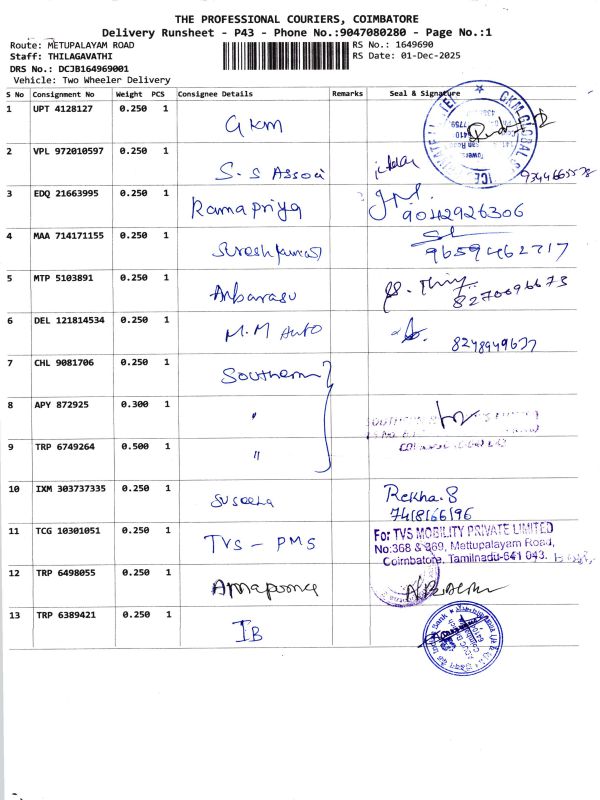 THE PROFESSIONAL COURIERS, COIMBATORE
Delivery Runsheet - P43 - Phone No.:9047080280 - Page No.:1
Route: METUPALAYAM ROAD RS No.: 1649690
Staff: THILAGAVATHI RS Date: 01-Dec-2025
DRS No.: DCJB164969001
Vehicle: Two Wheeler Delivery
S No Consignment No Weight PCS Consignee Details Remarks Seal & Signature
1 UPT 4128127 0.250 1 GKM
2 VPL 972010597 0.250 1 S.S Associ
9344665578
3 EDQ 21663995 0.250 1 Ramapriya
9042926306
4 MAA 714171155 0.250 1 Sureshkumar
9659462717
5 MTP 5103891 0.250 1 Anbarasu
8270696673
6 DEL 121814534 0.250 1 M.M Auto
8248949637
7 CHL 9081706 0.250 1 Southern
8 APY 872925 0.300 1 "
9 TRP 6749264 0.500 1 "
10 IXM 303737335 0.250 1 Suseela Rekha.S
7418166196
11 TCG 10301051 0.250 1 TVS - PMS For TVS MOBILITY PRIVATE LIMITED
No:368 & 369, Mettupalayam Road,
Coimbatore, Tamilnadu-641 043.
12 TRP 6498055 0.250 1 Annapoorna
13 TRP 6389421 0.250 1 IB